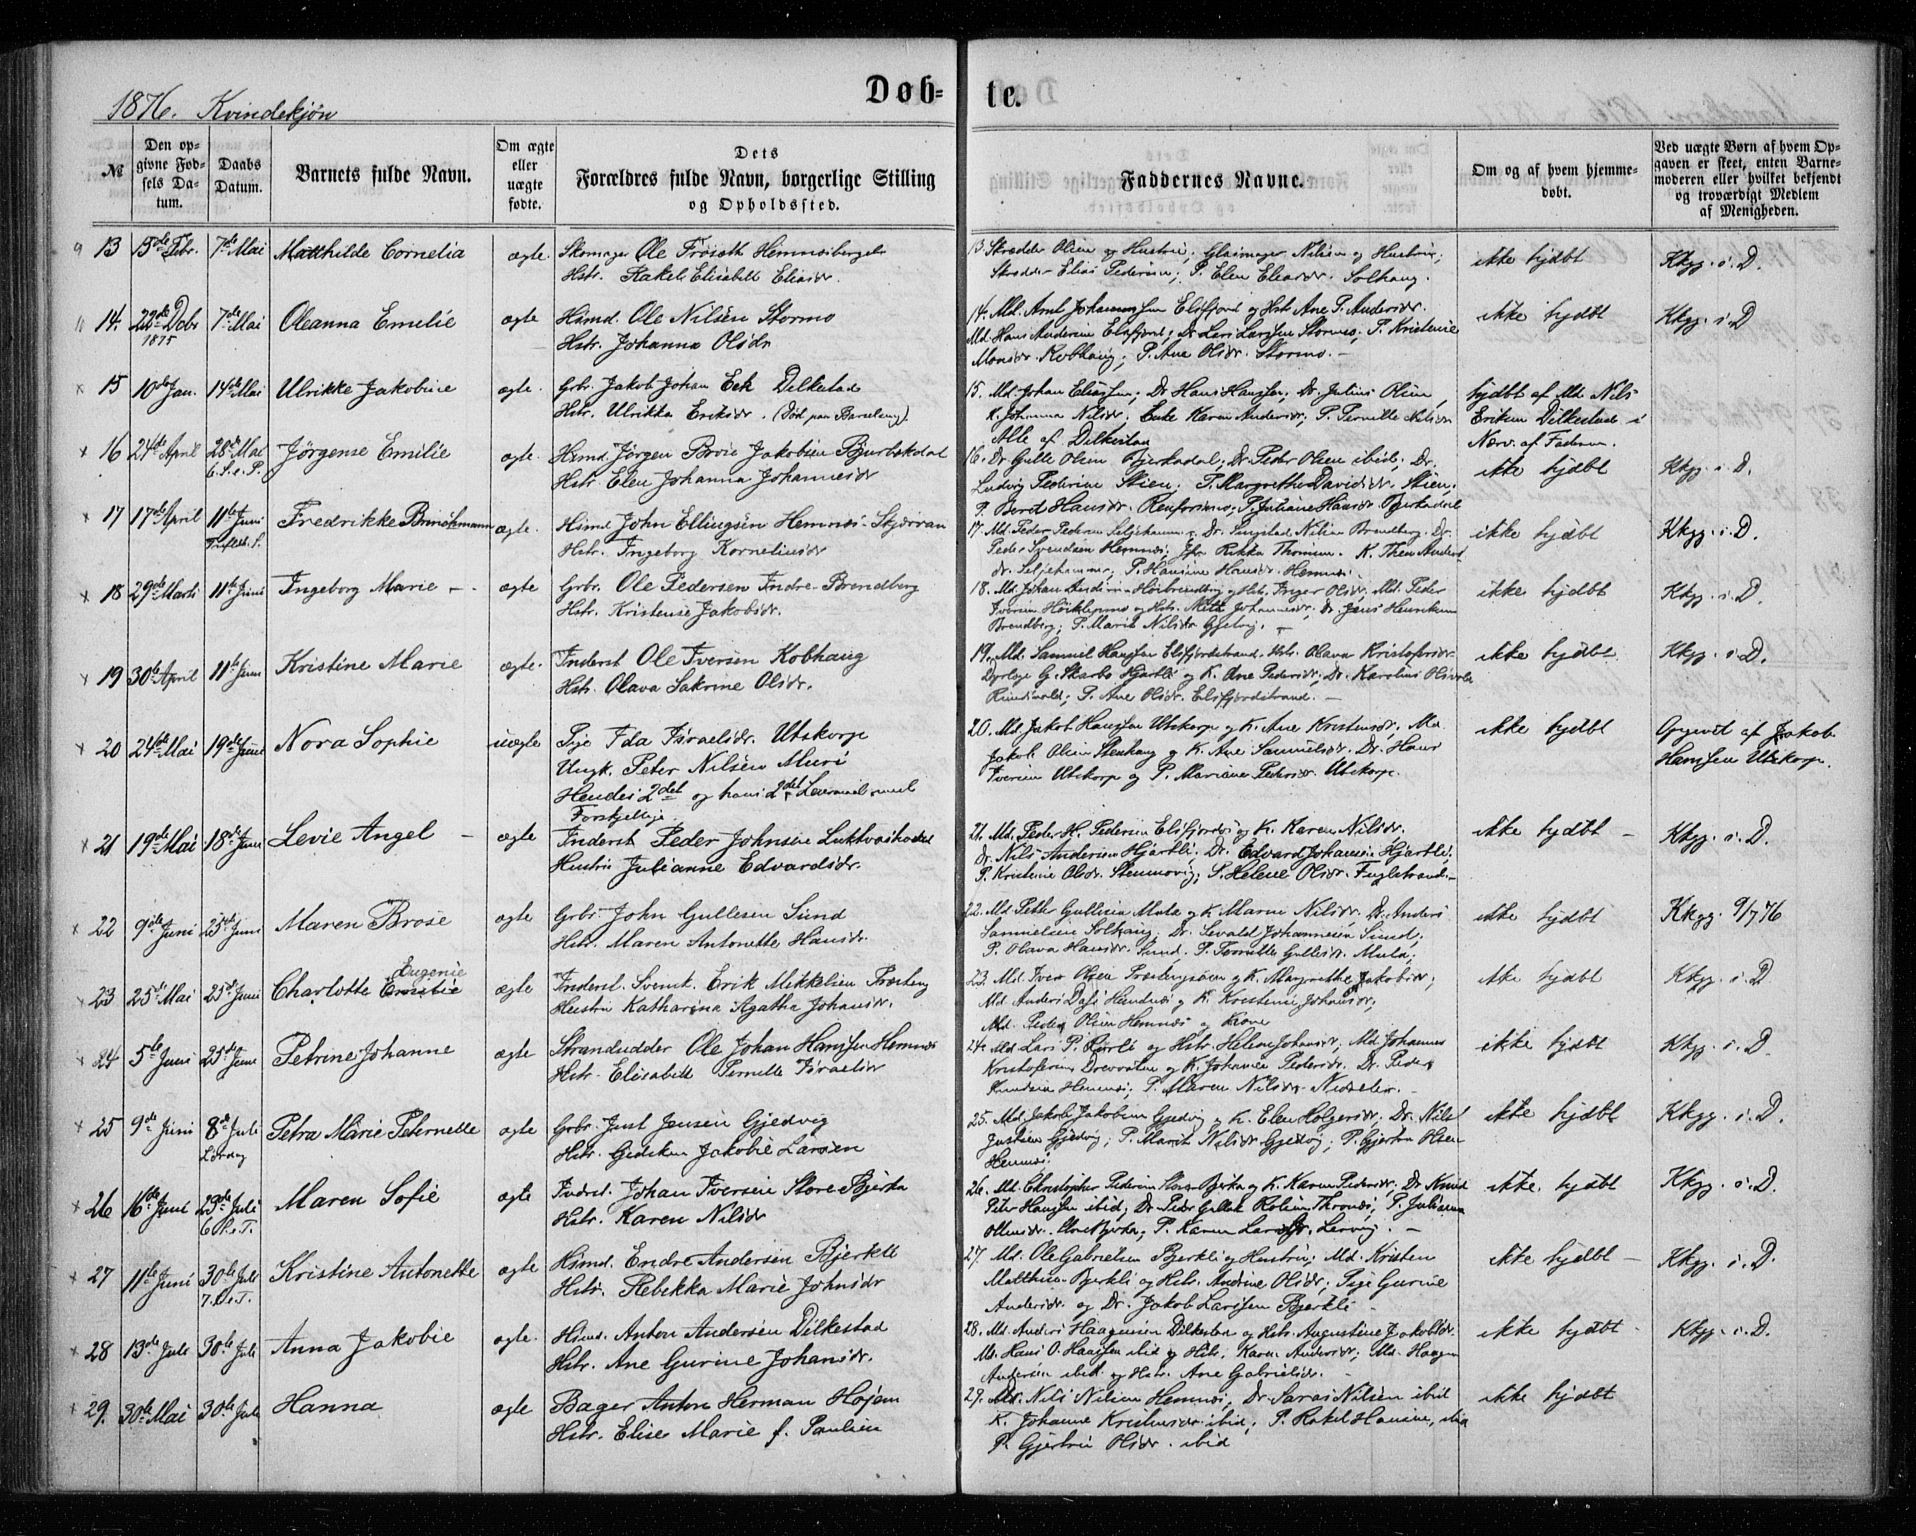 1876. Kvindekjøn
Døb-
te.
№
Den opgivne Fødsels Datum.
Daabs Datum.
Barnets fulde Navn.
Om ægte eller uægte fødte.
Dets Forældres fulde Navn, borgerlige Stilling og Opholdssted.
Faddernes Navne.
Om og af hvem hjemmedøbt.
Ved uægte Børn af hvem Opgaven er skeet, enten Barnemoderen eller hvilket bekjendt og troværdigt Medlem af Menigheden.
13 15de Febr. 7de Mai Mathilde Cornelia ægte. Skomager Ole
Hstr. Elisabeth Eliasdr.
13. Skrædder Olsen og Hustru; Glasmager Nilsen og Hustru;
Skrædder Elias Pedersen; P. Elen Eliasdr. Solhaug.
ikke hjdbt Kkgg. i. D.
14. 22de Dcbr 1875 7de Mai Oleanna Emelie ægte Hsmd. Ole Nilsen Stormo
Hstr. Johanna Olsdr
14. Md. Arnt Johannessen Elsfjord og Hstr. Ane P. Andersdr.
Md. Hans Andersen Elsfjord; Dr. Lars Larssen Stormo; P. Kristense
Monsdr. Kobhaug; P. Ane Olsdr. Stormo. –
ikke hjdbt Kkgg. i. D
15 10de Jan. 14de Mai Ulrikke Jakobine ægte. Grbr. Jakob Johan Eek Dilkestad
Hstr. Ulrikka Eriksdr. (Død paa Barselseng).
15. Md. Johan Eliassen; Dr. Hans Hanssen; Dr. Julius Olsen,
K. Johanna Nilsdr; Enke Karen Andersdr; P. Pernille Nilsdr
Alle af Dilkestad
hjdbt af Md. Nils
Eriksen Dilkestad i
Nærv. af Faderen.
16 24de April 28de Mai 6 S. e. P. Jørgense Emilie ægte. Hsmd. Jørgen Jakobsen Bjerkadal
Hstr. Elen Johanna Johannesdr
16. Dr. Gulle Olsen Bjerkadal; Dr. Peder Olsen ibid; Dr.
Ludvig Pedersen Stien; P. Margrethe Davidsdr. Stien;
P. Berit Hansdr. P. Juliane Hansdr Bjerkadal
ikke hjdbt Kkgg. i. D.
17 17de April 11te Juni Trefold. S. Fredrikke Brinchmann ægte. Hsmd John Ellingsen Hemnes-Skjærvan
Hstr. Ingeborg Kornelinsdr
17. Md. Peder Pedersen Seljehammer; Dr. Nilsen Brendberg. Dr.
Peder Svendsen Hemnes; Rikka Thomsen. K. Thea Anders-
dr. Seljehammer; P. Hansine Hansdr. Hemnes.
ikke hjdbt Kkgg. i. D.
18 29de Marts 11te Juni Ingeborg Marie – ægte Grbr. Ole Pedersen Indre-Brendberg
Hstr. Kristense Jakobsdr.
18. Md. Johan og Hstr. Inger Olsdr, Md. Peder
Iversen og Hstr. Johannesdr. Dr. Jens Henriksen
Brendberg; P. Marit Nilsdr. Gjetvig. –
ikke hjdbt Kkgg. i. D.
19 30te April 11te Juni Kristine Marie ægte. Inderst Ole Iversen Kobhaug
Hstr. Olava Sakrine Olsdr.
19. Md. Samuel Hanssen Elsfjordstrand. Hstr. Olava Kristofersdr.
Hjartli og K. Ane Pedersdr; Dr. Karolius Olsen
P. Ane Olsdr. Elsfjordstrand. –
ikke hjdbt. Kkgg. i D.
20 24de Mai 19de Juni Nora Sophie uægte Pige Ida Israelsdr. Utskorpe
Ungk. Peter Nilsen Muri
Hendes 2det og hans 2det Leiermaal med
Forskjellige.
20. Md. Jakob Hanssen Utskorpe og K. Ane Kristensdr; Md.
Jakob Olsen Stenhaug og K. Ane Samuelsdr. Dr. Hans
Iversen Utskorpe og P. Mariane Pedersdr Utskorpe.
ikke hjdbt Opgivet af Jakob
Hanssen Utskorpe.
21 19de Mai 18de Juni Levie Angel – ægte Inderst Peder Johnsen
Hustru Julianne Edvardsdr.
21. Md. Peder H. Pedersen Elsfjordnes og K. Karen Nilsdr.
Dr. Nils Andersen Hjartli; Dr. Edvard Johansen Hjartli;
P. Kristine Olsdr. P. Helene Olsdr. Fuglstrand. –
ikke hjdbt – Kkgg. i. D.
22 9de Juni 25de Juni Maren Brose ægte Grbr. John Gullesen Sund
Hstr. Maren Antonette Hansdr.
22. Md. Gullesen Mula og K. Maren Nilsdr. Dr. Anders
Samuelsen Solhaug; Dr. Sevald Johannesen Sund;
P. Olava Hansdr. Sund; P. Pernille Gullesdr. Mula;
ikke hjdbt Kkgg. 9/7 76
23 25de Mai 25de Juni Charlotte Emilie Eugenie ægte Inderst. Svend. Erik Mikkelsen
Hustru Katharina Agatha Johansdr.
23. Md. Iver Olsen og K. Margrethe Jakobsdr;
Md. Anders Hemnes og K. Kristine Johansdr;
Md. Peder Olsen Hemnes og Kone
ikke hjdbt Kkgg. i. D
24 5te Juni 25de Juni Petrine Johanne ægte Strandsidder Ole Johan Hanssen Hemnes
Hstr. Elisabeth Pernille Israelsdr
24. Md Lars P. og Hstr. Helene Johansdr, Md Johannes
Kristofersen og K. Johanna Pedersdr. Dr. Peder
Knudsen Hemnes; P. Maren Nilsdr.
ikke hjdbt Kkgg. i. D.
25 9de Juni 8de Juli Lørdag Petra Marie Peternelle ægte Grbr. Just Jensen Gjedvig
Hstr. Jakobie Larsen
25. Md. Jakob Jakobsen Gjedvig og K. Elen Holgersdr; Dr. Nils
Justsen Gjedvig; P. Marit Nilsdr Gjedvig; P. Gjertru Olsen
Hemnes.
ikke hjdbt Kkgg. i. D.
26 16de Juni 29de Juli Maren Sofie ægte Indrst. Johan Iversen Store Bjerka
Hstr. Karen Nilsdr
26. Md. Christopher Pedersen Store Bjerka og K. Karen Pedersdr; Dr. Knud
Peter Hanssen ibid; P. Juliana
Olsdr. Store Bjerka; P. Karen Larsdr. Lervig. –
ikke hjdbt Kkgg. i. D.
27 11te Juni 30te Juli 7. S. e. T. Kristine Antonette ægte Hsmd. Endre Andersen Bjerkli
Hstr. Rebekka Marie Johnsdr
27. Md. Ole Gabrielsen Bjerkli og Hustru; Md. Kristen
Bjerkli og Hstr. Andrine Olsdr; Pige Gurine
Andersdr. og Dr. Jakob Larssen Bjerkli –
ikke hjdbt – Kkgg. i. D.
28 13de Juli 30te Juli Anna Jakobie ægte. Hsmd. Anton Andersen Dilkestad
Hstr. Ane Gurine Johansdr.
28. Md. Anders Haagensen Dilkestad og Hstr. Augustine Jakobsdr.
Md. Hans O. ibid og Hstr. Karen Andersdr; Md. Haagen
Andersen ibid. og Hstr. Ane Gabrielsdr. –
ikke hjdbt – Kkgg. i. D.
29. 30te Mai 30te Juli Hanna ægte Bager Anton Herman Højem
Hstr. Elise Marie f. Paulsen
29. Md. Nils Nilsen Hemnes; Dr. Saras Nilsen ibid
K. Johanne Kristensdr ibid; P. Rakel Hansine, ibid
P. Gjertru Olsdr. ibid
ikke hjdbt